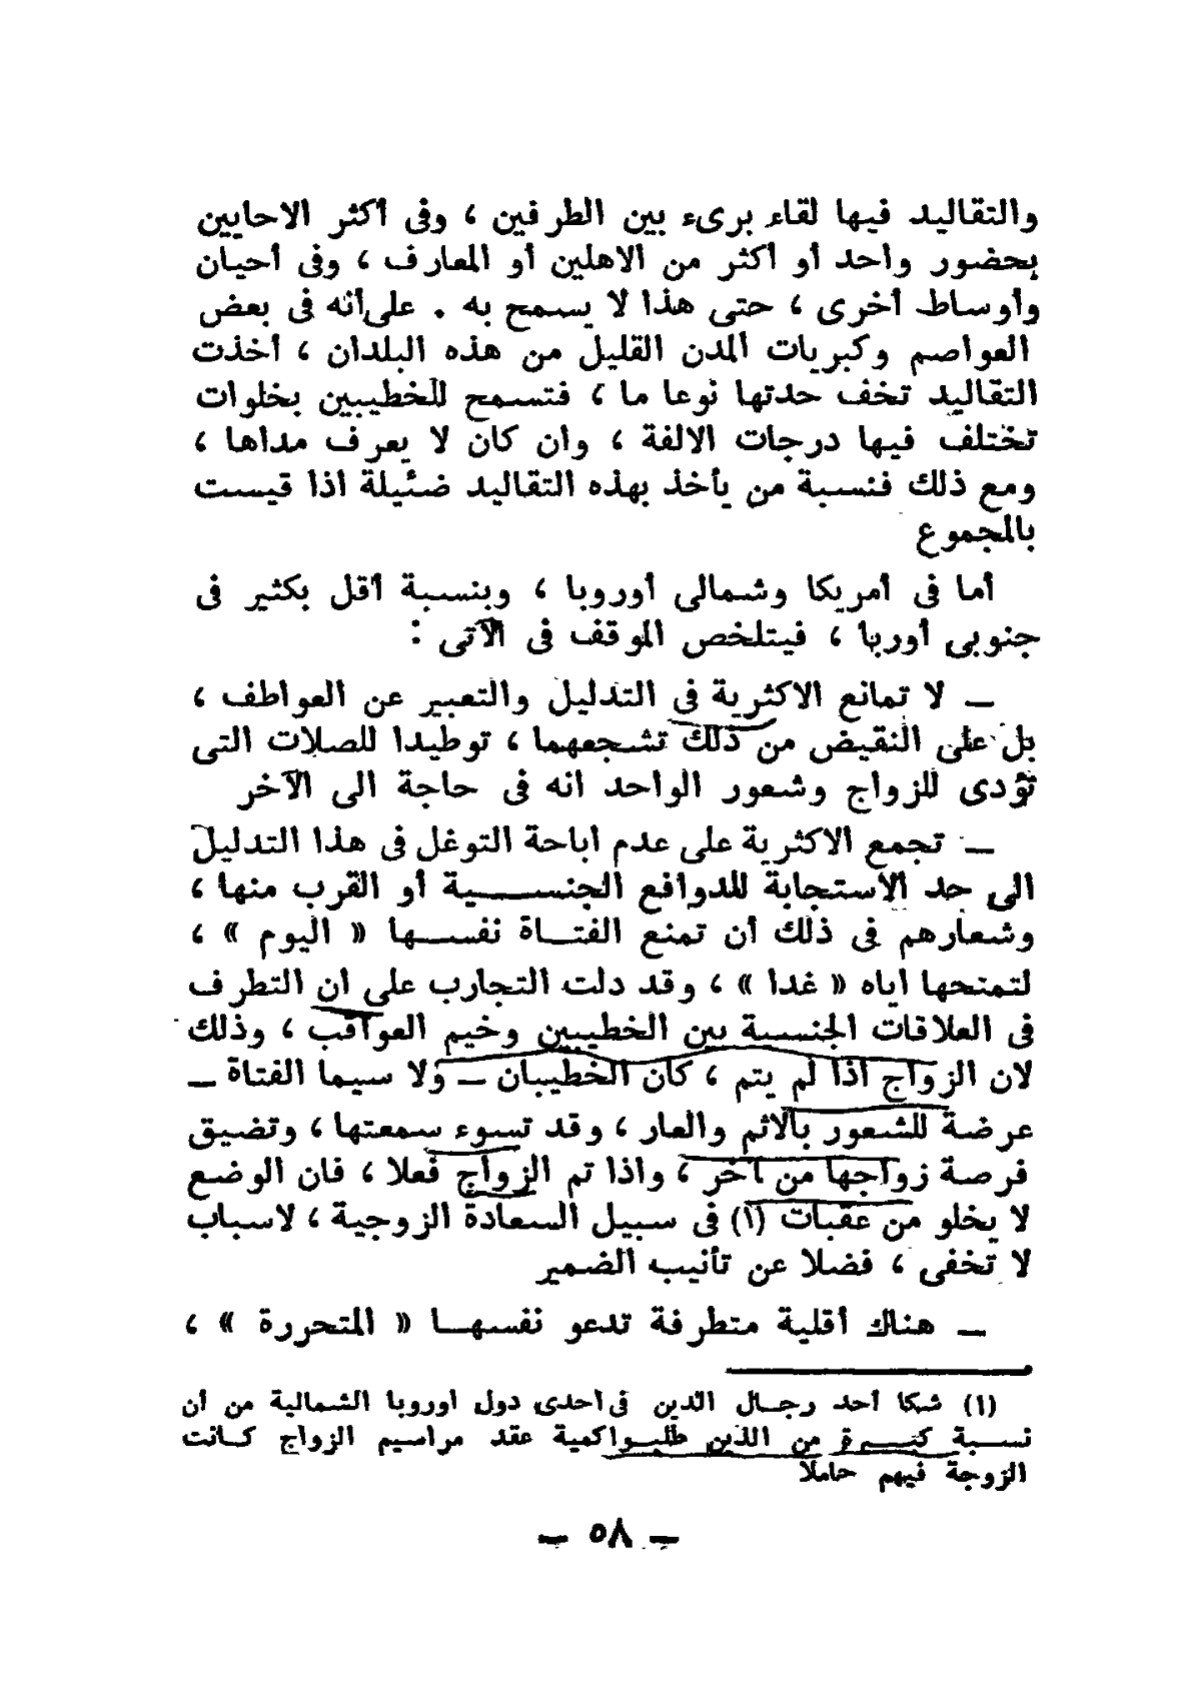 والتقاليد فيها لقاء برىء بين الطرفين ، وفى أكثر الاحايين
بحضور واحد أو أكثر من الاهلين أو المعارف ، وفى أحيان
وأوساط أخرى ، حتى هذا لا يسمح به . على أنه فى بعض
العواصم وكبريات المدن القليل من هذه البلدان ، أخذت
التقاليد تخف حدتها نوعا ما ، فتسمح للخطيبين بخلوات
تختلف فيها درجات الالفة ، وان كان لا يعرف مداها ،
ومع ذلك فنسبة من يأخذ بهذه التقاليد ضئيلة اذا قيست
بالمجموع
أما فى أمريكا وشمالى أوروبا ، وبنسبة أقل بكثير فى
جنوبى أوربا ، فيتلخص الموقف فى الآتى :
ــ لا تمانع الاكثرية فى التدليل والتعبير عن العواطف ،
بل على النقيض من ذلك تشجعهما ، توطيدا للصلات التى
تؤدى للزواج وشعور الواحد انه فى حاجة الى الآخر
ــ تجمع الاكثرية على عدم اباحة التوغل فى هذا التدليل
الى حد الاستجابة للدوافع الجنســـية أو القرب منها ،
وشعارهم فى ذلك أن تمنع الفتــاة نفســها « اليوم » ،
لتمنحها اياه « غدا » ، وقد دلت التجارب على ان التطرف
فى العلاقات الجنسية بين الخطيبين وخيم العواقب ، وذلك
لان الزواج اذا لم يتم ، كان الخطيبان ــ ولا سيما الفتاة ــ
عرضة للشعور بالاثم والعار ، وقد تسوء سمعتها ، وتضيق
فرصة زواجها من آخر ، واذا تم الزواج فعلا ، فان الوضع
لا يخلو من عقبات (١) فى سبيل السعادة الزوجية ، لاسباب
لا تخفى ، فضلا عن تأنيب الضمير
ــ هناك أقلية متطرفة تدعو نفسهــا « المتحررة » ،
(١) شكا أحد رجــال الدين فى احدى دول اوروبا الشمالية من أن
نســبة كبــيرة من الذين طلبــوا كمية عقد مراسيم الزواج كــانت
الزوجة فيهم حاملا
ــ ٥٨ ــ